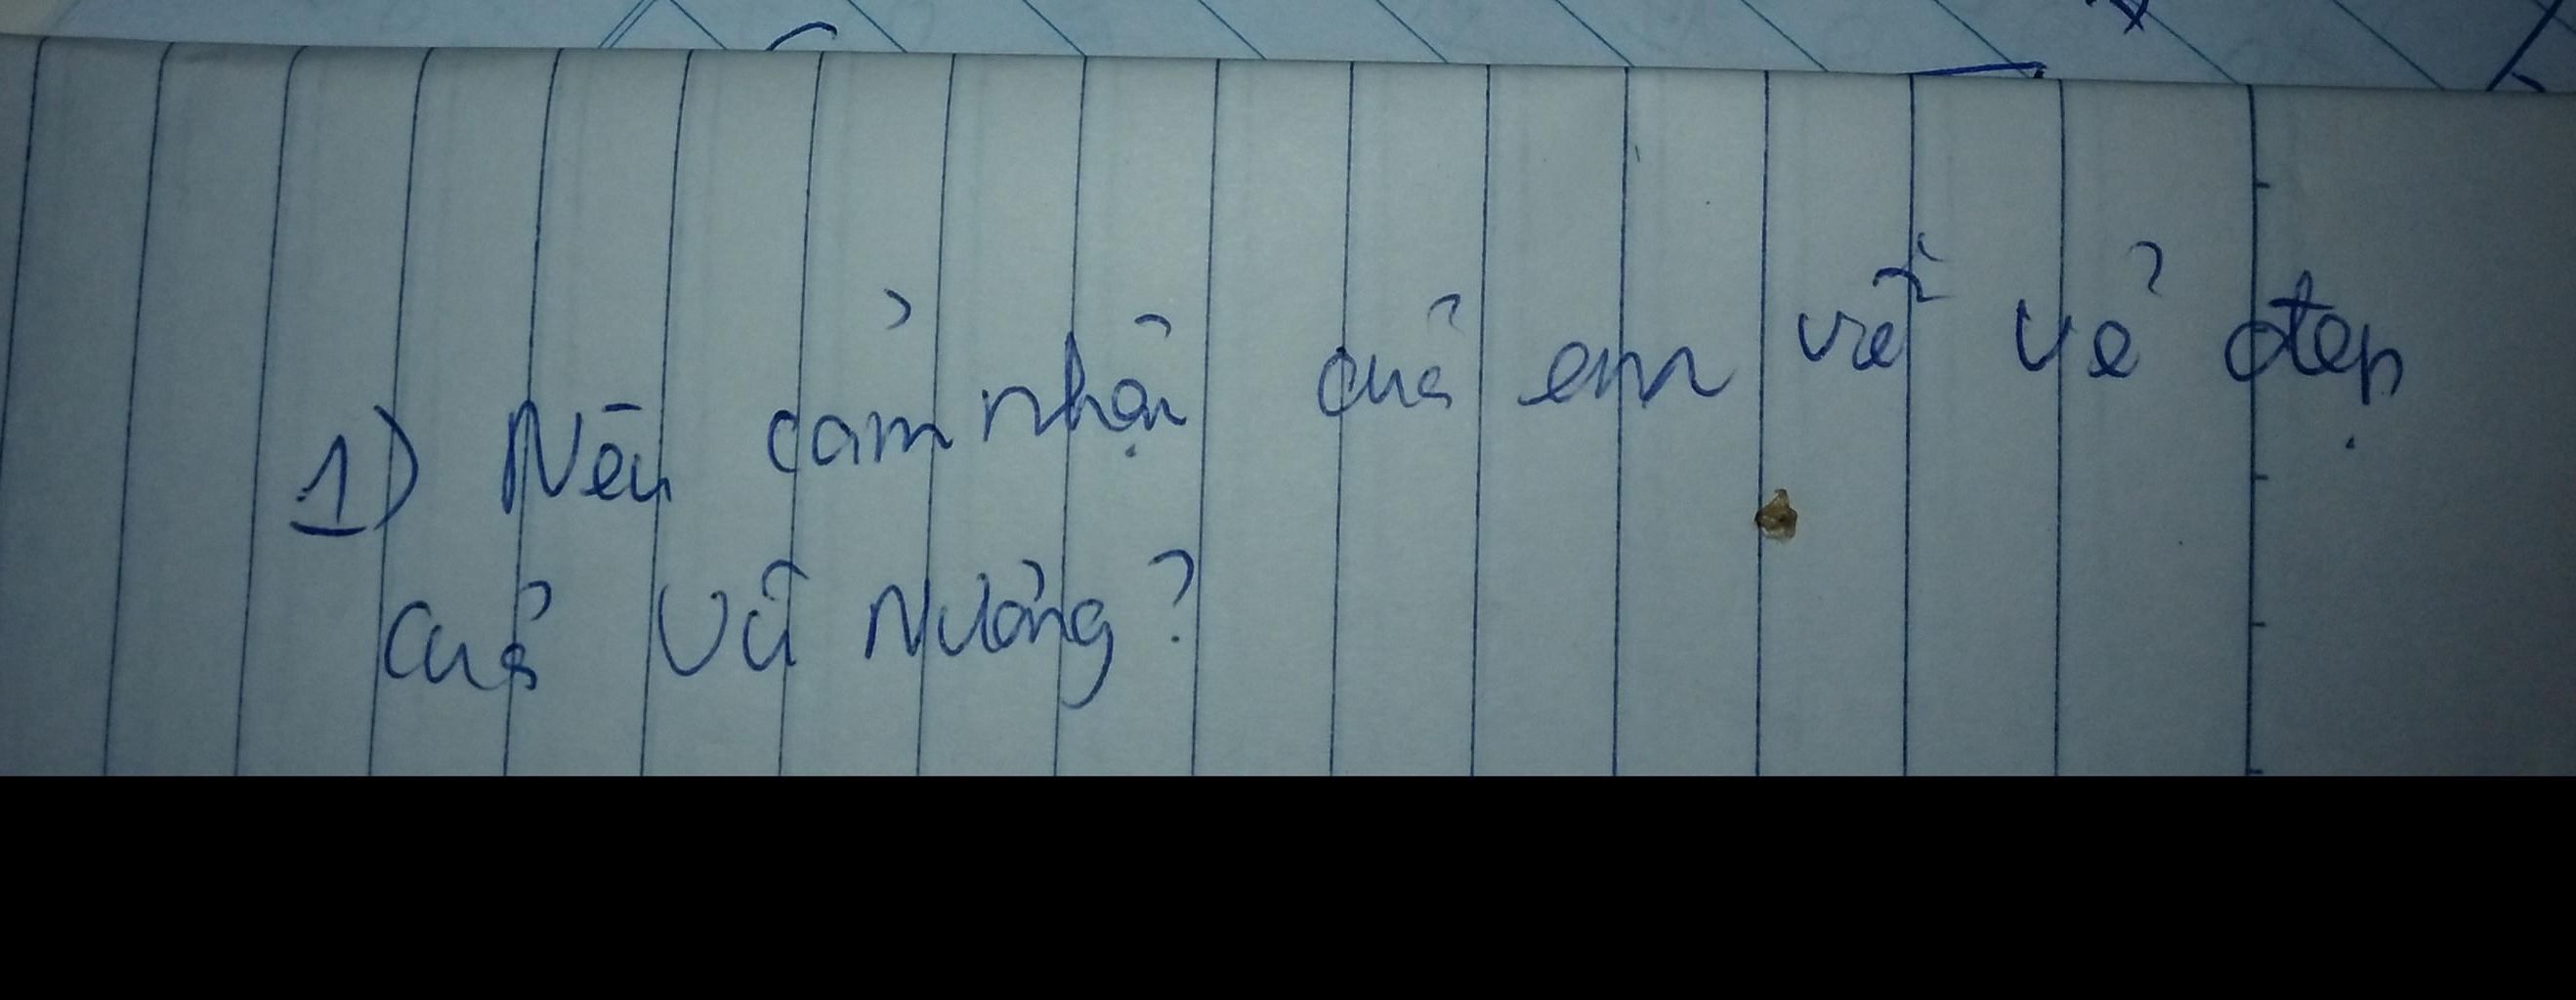 1) Nêu cảm nhận của em về vẻ đẹp
của Vũ Nương?